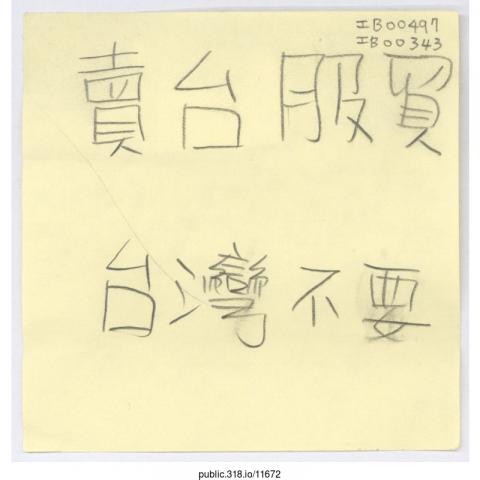 IB00497
IB00343
賣台服貿
台灣不要
public.318.io/11672